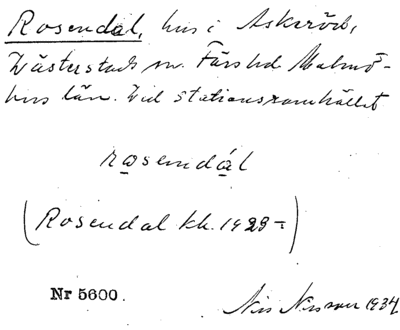 Rosendal, hus i Askeröd,
Västerstads sn. Färs hd Malmö-
hus län. Vid stationssamhället
rosendál
(Rosendal kh. 1929-)
Nr 5600.
Nils Nilsson 1934